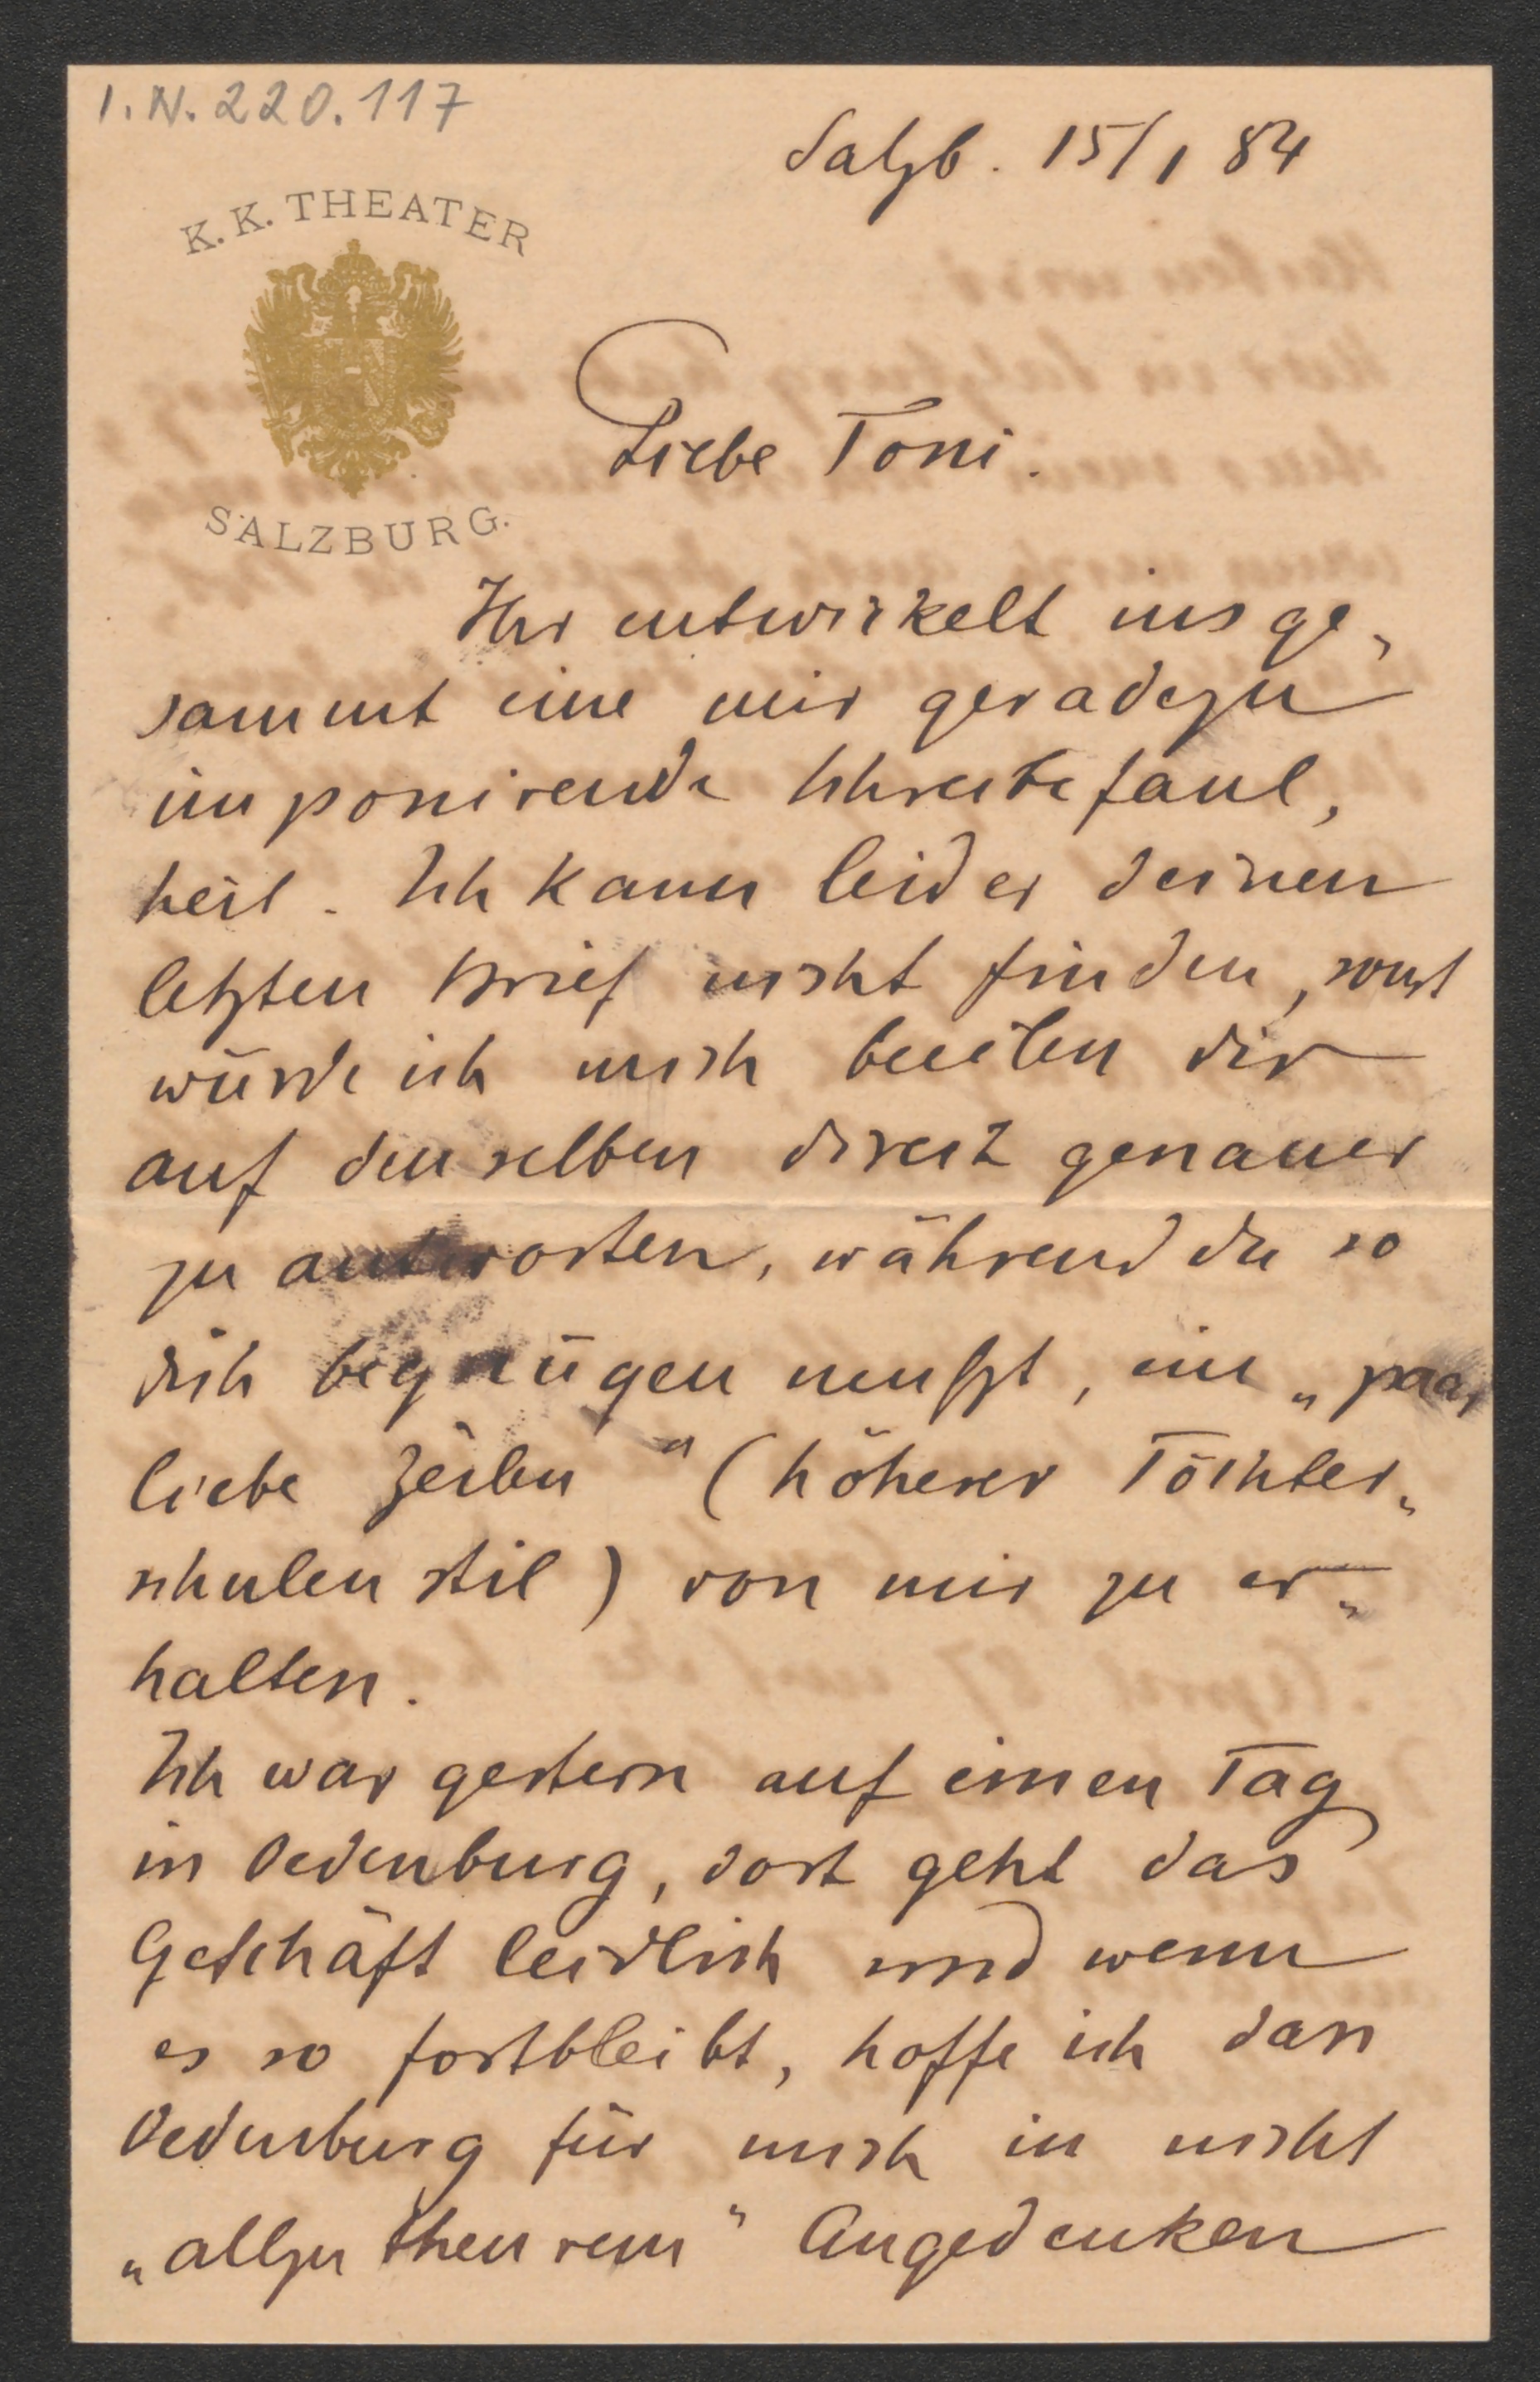 I.N. 220.117
Salzb. 15/1 84
K. K. THEATER
SALZBURG.
Liebe Toni.
Ihr entwickelt insge-
sammt eine mir geradezu
imponirende Schreibefaul-
heit. Ich kann leider deinen
letzten Brief nicht finden, sonst
würde ich mich beeilen dir
auf denselben direct genauer
zu antworten, während du so
dich begnügen mußt, ein „paar
liebe Zeilen“ (höherer Töchter-
schulen stil) von mir zu er-
halten.
Ich war gestern auf einen Tag
in Oedenburg, dort geht das
Geschäft leidlich und wenn
es so fortbleibt, hoffe ich dass
Oedenburg für mich in nicht
„allzu theurem“ Angedenken